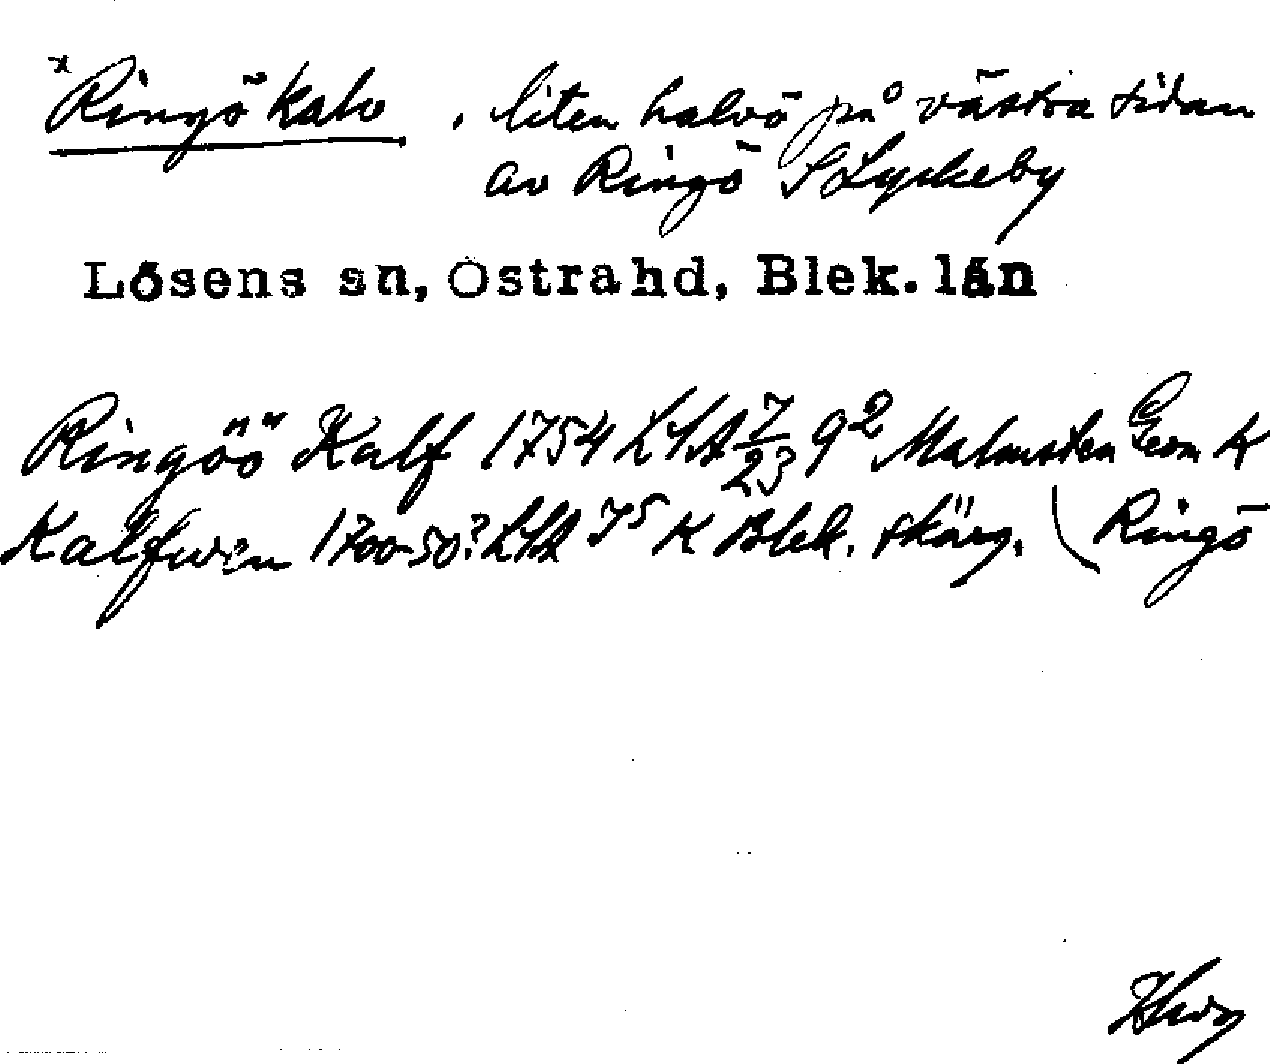 x Ringö kalv, liten halvö på västra sidan
av Ringö S Lyckeby
Lösens sn, Östra hd, Blek. län
Ringöö Kalf 1754 LSA 7/23 9² Malmsten Geom K
Kalfwen 1700-50? LSA J⁵ K Blek. skärg. Ringö